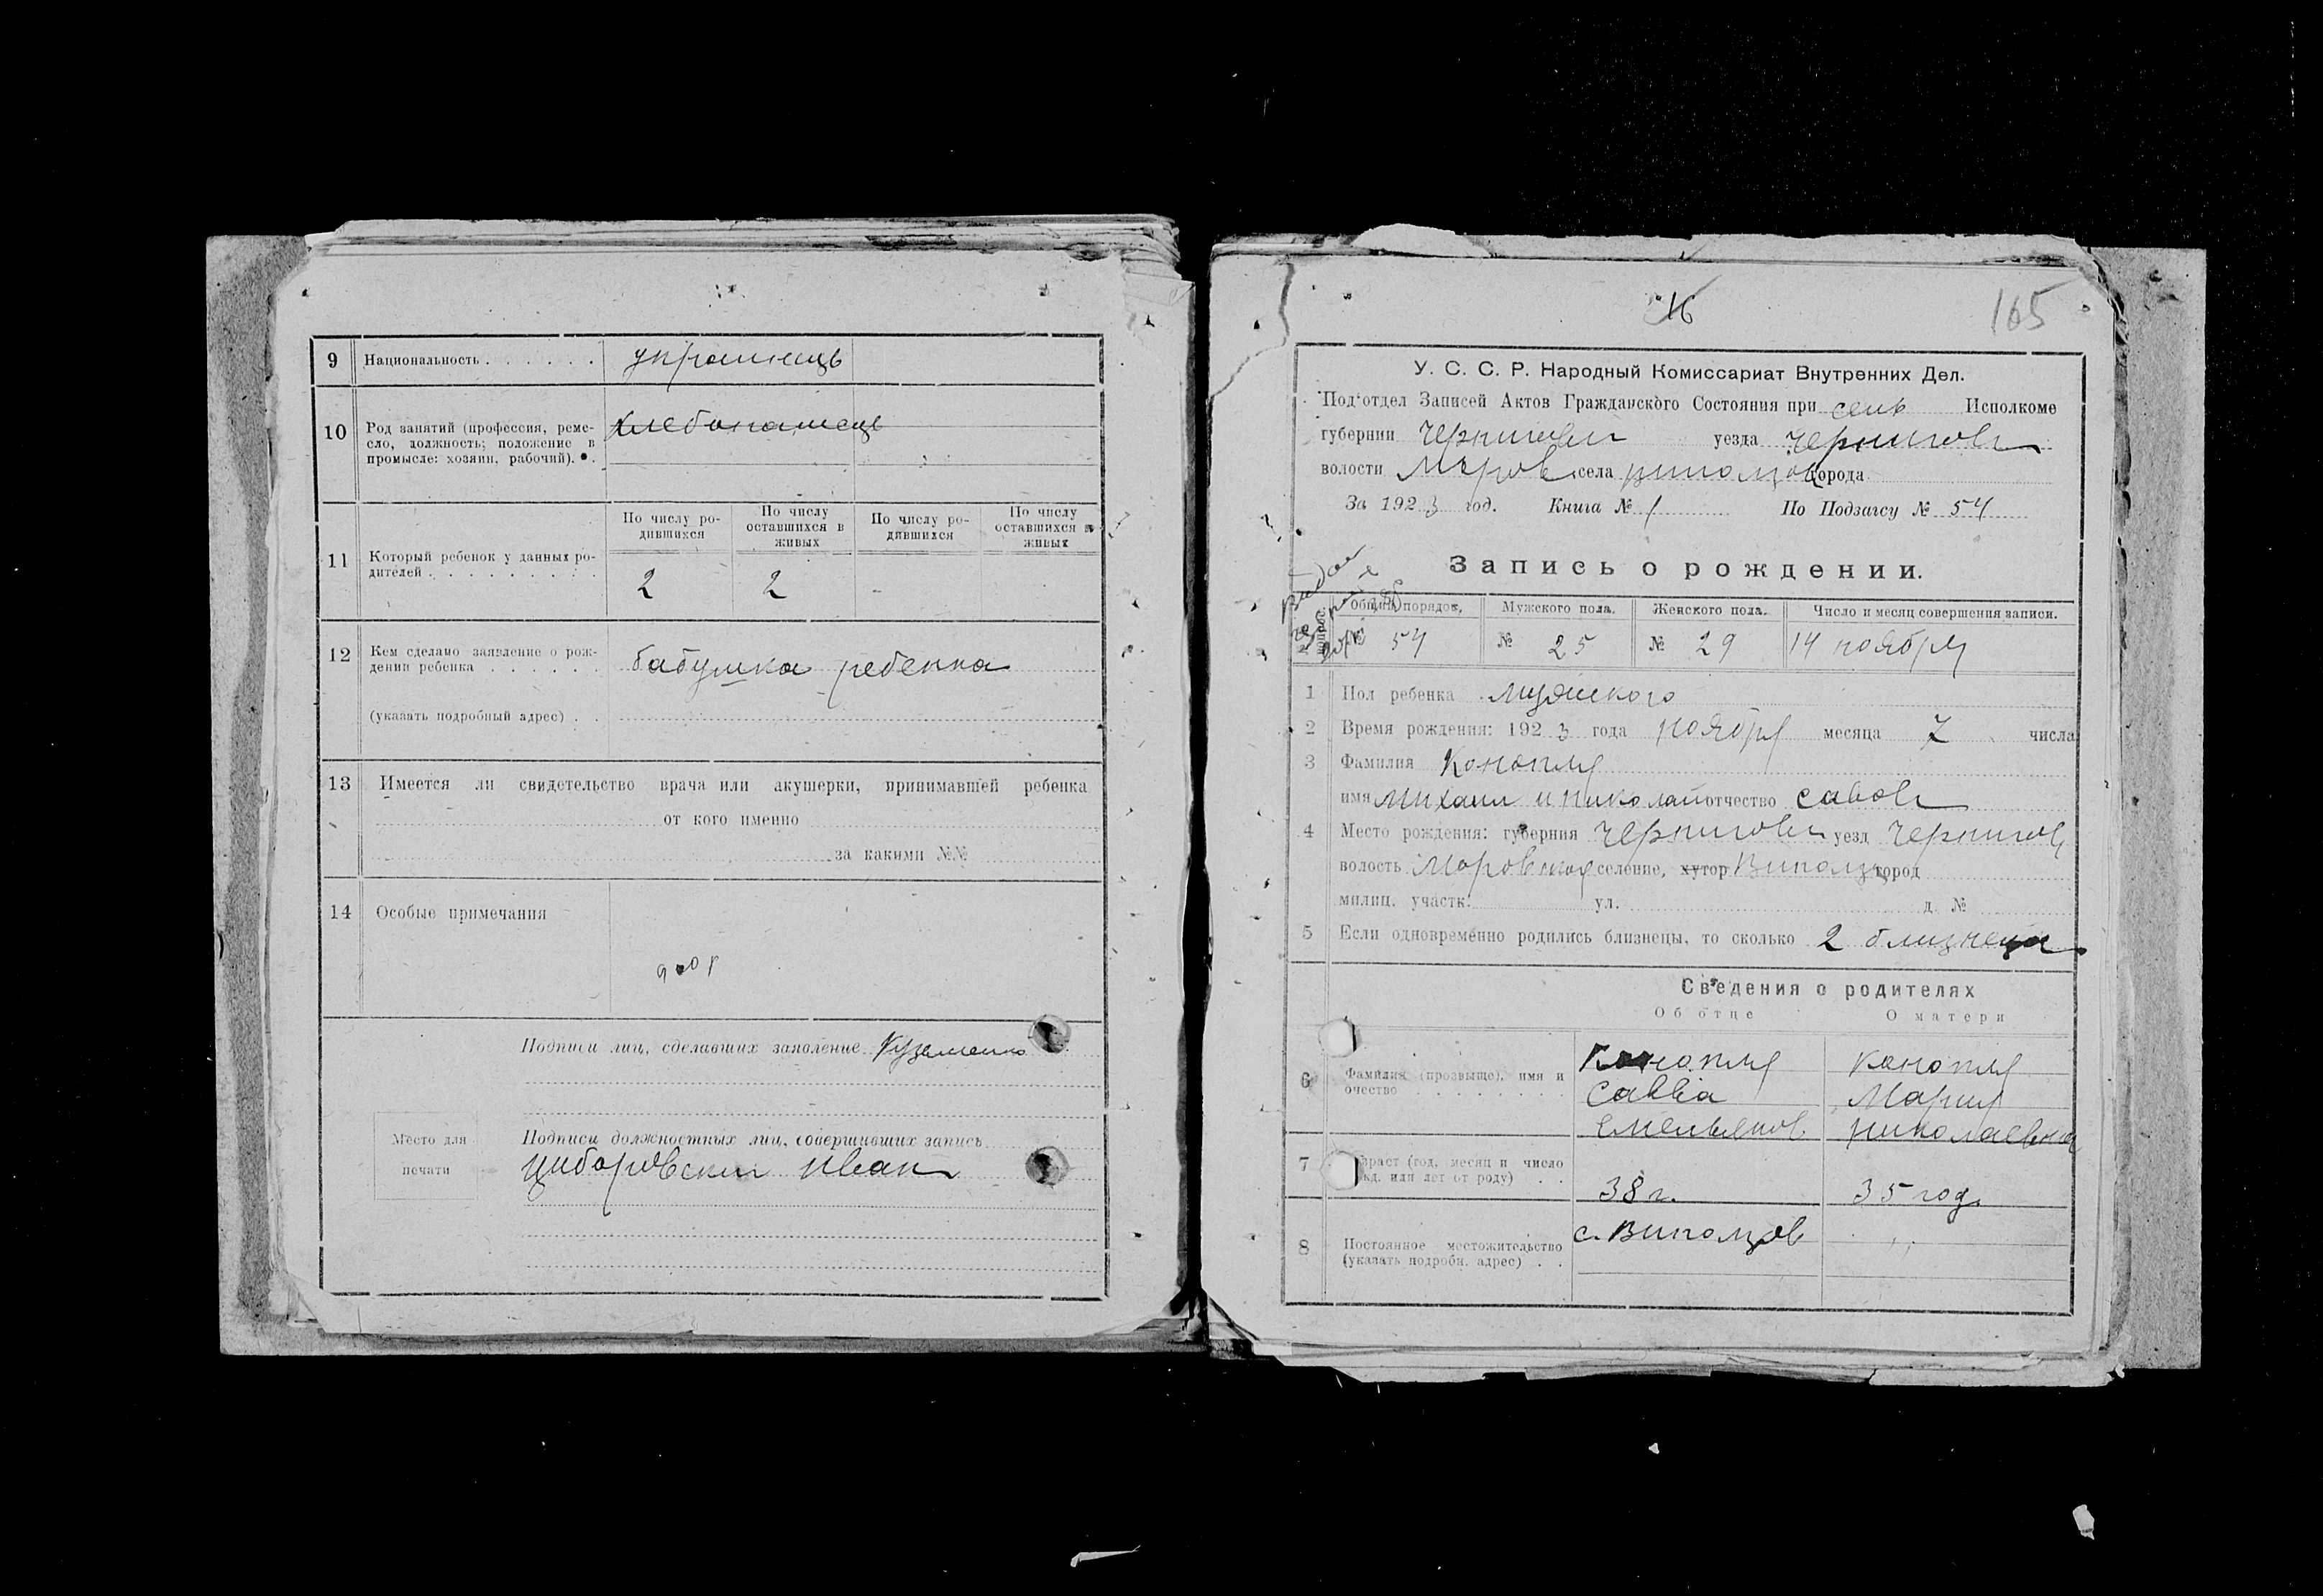 9 Национальность . . . . . . украинець
10 Род занятий (профессия, реме-
сло, должность; положение в
промысле: хозяин, рабочий). .
хлебопашець
По числу ро-
дившихся
По числу
оставшихся в
живых
По числу ро-
дившихся
По числу
оставшихся в
живых
11 Который ребенок у данных ро-
дителей . . . . . . . . . 2 2 -
12 Кем сделано заявление о рож-
дении ребенка . . . . . . бабушка ребенка
(указать подробный адрес) . .
13 Имеется ли свидетельство врача или акушерки, принимавшей ребенка
от кого именно
за какими №№
14 Особые примечания
Подписи лиц, сделавших заявление Кузменко
Место для
печати
Подписи должностных лиц, совершивших запись
Циборовский Иван
16
165
У. С. С. Р. Народный Комиссариат Внутренних Дел.
Под'отдел Записей Актов Гражданского Состояния при сель Исполкоме
губернии Чернигови уезда Чернигов
волости Моров села города
За 1923 год. Книга № 1 По Подзагсу № 54
Запись о рождении.
Общий порядок, Мужского пола. Женского пола. Число и месяц совершения записи.
№ 54 № 25 № 29 14 ноября
1 Пол ребенка мужского
2 Время рождения: 1923 года ноября месяца 7 числа
3 Фамилия Конопля
имя Михаил и Николай отчество Савов
4 Место рождения: губерния Чернигови уезд Чернигов
волость Моровская селение, хутор Виползов город
милиц. участк. ул. д. №
5 Если одновременно родились близнецы, то сколько 2 близнеца
Сведения о родителях
Об отце О матери
6 Фамилия (прозвыще), имя и
очество . . . . . . . .
Конопля Конопля
Савва Мария
Емельянов. Николаевна
7 Возраст (год, месяц и число
рожд. или лет от роду) . .
38 г. 35 год.
8 Постоянное местожительство
(указать подробн. адрес) . .
с. Виползов ,,